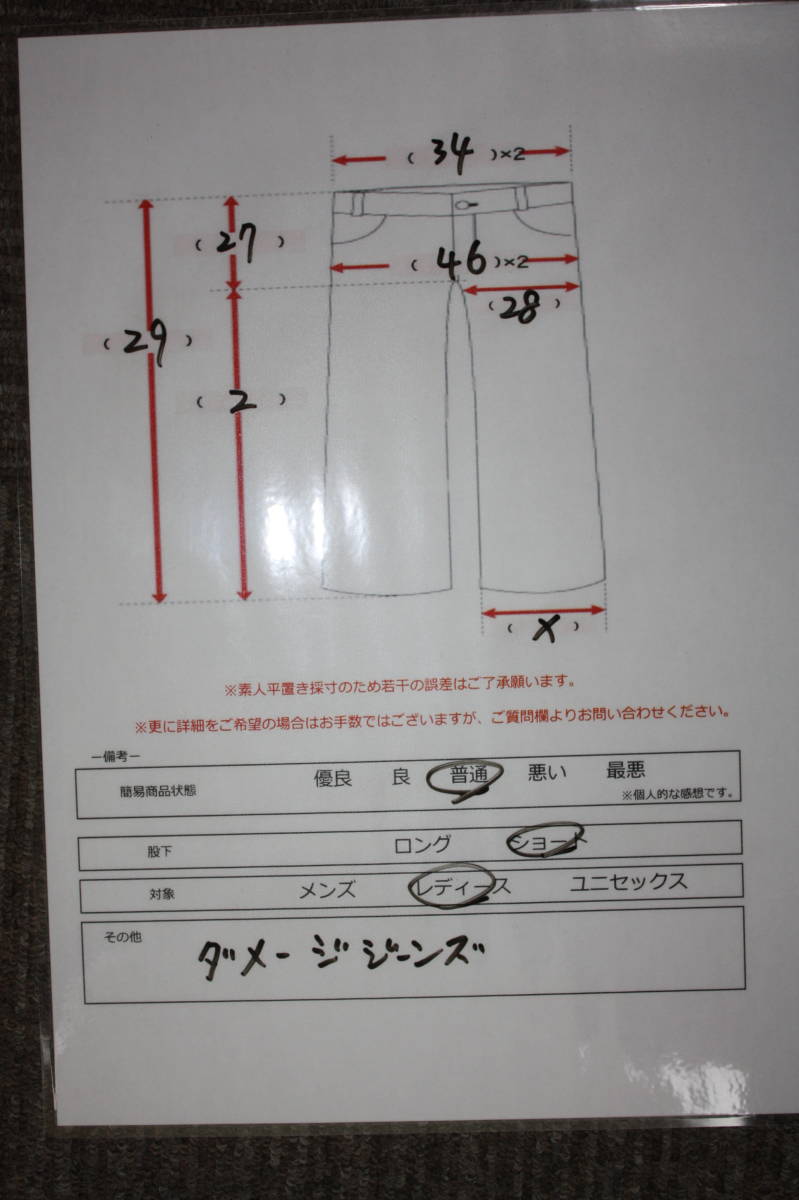 ( 34 )×2
( 27 )
( 46 )×2
( 28 )
( 29 )
( 2 )
( X )
※素人平置き採寸のため若干の誤差はご了承願います。
※更に詳細をご希望の場合はお手数ではございますが、ご質問欄よりお問い合わせください。
ー備考ー
簡易商品状態 優良 良 普通 悪い 最悪
※個人的な感想です。
股下 ロング ショート
対象 メンズ レディース ユニセックス
その他
ダメージジーンズ